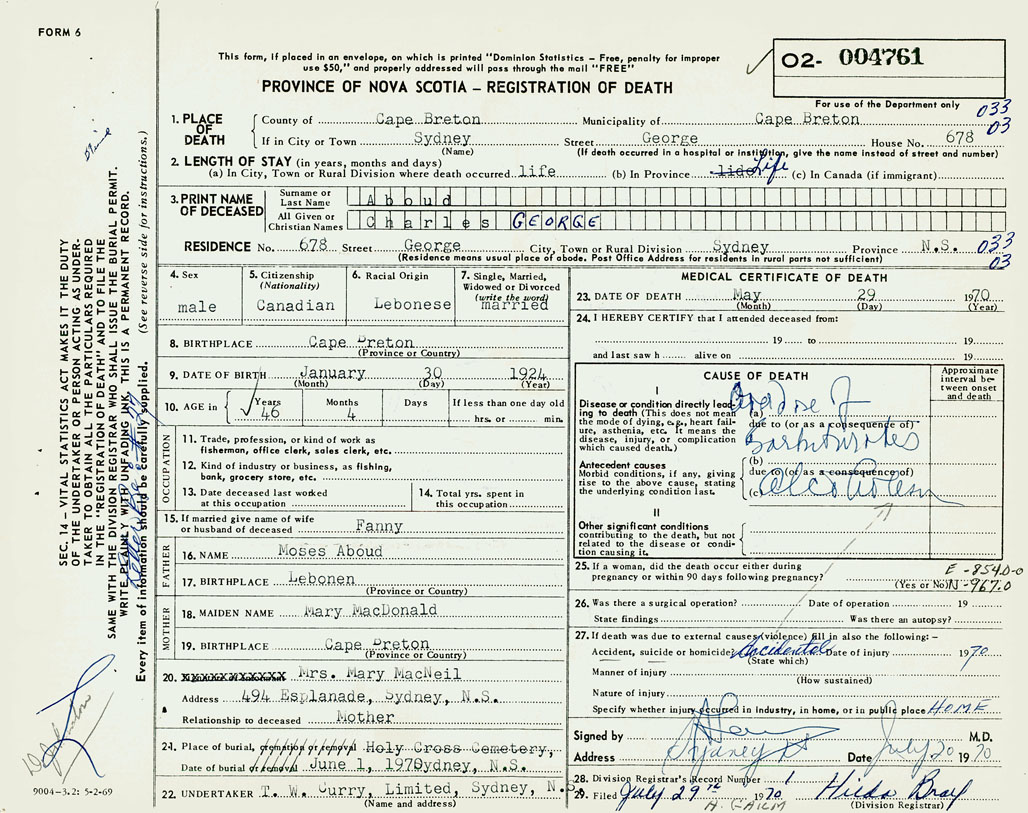 FORM 6
This form, if placed in an envelope, on which is printed "Dominion Statistics – Free, penalty for improper
use $50," and properly addressed will pass through the mail "FREE"
PROVINCE OF NOVA SCOTIA – REGISTRATION OF DEATH
O2- 004761
For use of the Department only
033
03
1. PLACE OF DEATH
County of Cape Breton Municipality of Cape Breton
If in City or Town Sydney Street George House No. 678
(Name) (If death occurred in a hospital or institution, give the name instead of street and number)
2. LENGTH OF STAY (in years, months and days)
(a) In City, Town or Rural Division where death occurred life (b) In Province Life (c) In Canada (if immigrant)
3. PRINT NAME OF DECEASED
Surname or Last Name Aboud
All Given or Christian Names Charles GEORGE
RESIDENCE No. 678 Street George City, Town or Rural Division Sydney Province N.S. 033
(Residence means usual place of abode. Post Office Address for residents in rural parts not sufficient) 03
4. Sex
male
5. Citizenship
(Nationality)
Canadian
6. Racial Origin
Lebonese
7. Single, Married,
Widowed or Divorced
(write the word)
married
8. BIRTHPLACE Cape Breton
(Province or Country)
9. DATE OF BIRTH January 30 1924
(Month) (Day) (Year)
10. AGE in Years 46 Months 4 Days If less than one day old
hrs. or min.
OCCUPATION
11. Trade, profession, or kind of work as
fisherman, office clerk, sales clerk, etc.
12. Kind of industry or business, as fishing,
bank, grocery store, etc.
13. Date deceased last worked
at this occupation
14. Total yrs. spent in
this occupation
15. If married give name of wife
or husband of deceased Fanny
FATHER
16. NAME Moses Aboud
17. BIRTHPLACE Lebonen
(Province or Country)
MOTHER
18. MAIDEN NAME Mary MacDonald
19. BIRTHPLACE Cape Breton
(Province or Country)
20. Mrs. Mary MacNeil
Address 494 Esplanade, Sydney, N.S.
Relationship to deceased Mother
21. Place of burial, cremation or removal Holy Cross Cemetery,
Date of burial or removal June 1, 1970 Sydney, N.S.
22. UNDERTAKER T. W. Curry, Limited, Sydney, N.S.
(Name and address)
MEDICAL CERTIFICATE OF DEATH
23. DATE OF DEATH May 29 1970
(Month) (Day) (Year)
24. I HEREBY CERTIFY that I attended deceased from:
19 to 19
and last saw h alive on 19
CAUSE OF DEATH
Approximate
interval be-
tween onset
and death
I
Disease or condition directly lead-
ing to death (This does not mean
the mode of dying, e.g., heart fail-
ure, asthenia, etc. It means the
disease, injury, or complication
which caused death)
(a) Overdose of
due to (or as a consequence of)
Barbiturates
Antecedent causes
Morbid conditions, if any, giving
rise to the above cause, stating
the underlying condition last.
(b)
due to (or as a consequence of)
(c) Alcoholism
II
Other significant conditions
contributing to the death, but not
related to the disease or condi-
tion causing it.
25. If a woman, did the death occur either during
pregnancy or within 90 days following pregnancy?
(Yes or No)
E-8540-0
N-967.0
26. Was there a surgical operation? Date of operation 19
State findings Was there an autopsy?
27. If death was due to external causes (violence) fill in also the following: –
Accident, suicide or homicide Accidental Date of injury 1970
(State which)
Manner of injury
(How sustained)
Nature of injury
Specify whether injury occurred in industry, in home, or in public place HOME
Signed by M.D.
Address Sydney NS Date July 20 1970
28. Division Registrar's Record Number 1
29. Filed July 29th 1970 Hilda Bray
(Division Registrar)
SEC. 14 – VITAL STATISTICS ACT MAKES IT THE DUTY
OF THE UNDERTAKER OR PERSON ACTING AS UNDER-
TAKER TO OBTAIN ALL THE PARTICULARS REQUIRED
IN THE "REGISTRATION OF DEATH" AND TO FILE THE
SAME WITH THE DIVISION REGISTRAR WHO SHALL ISSUE THE BURIAL PERMIT.
WRITE PLAINLY WITH UNFADING INK. THIS IS A PERMANENT RECORD.
Every item of information should be carefully supplied. (See reverse side for instructions.)
9004-3.2: 5-2-69